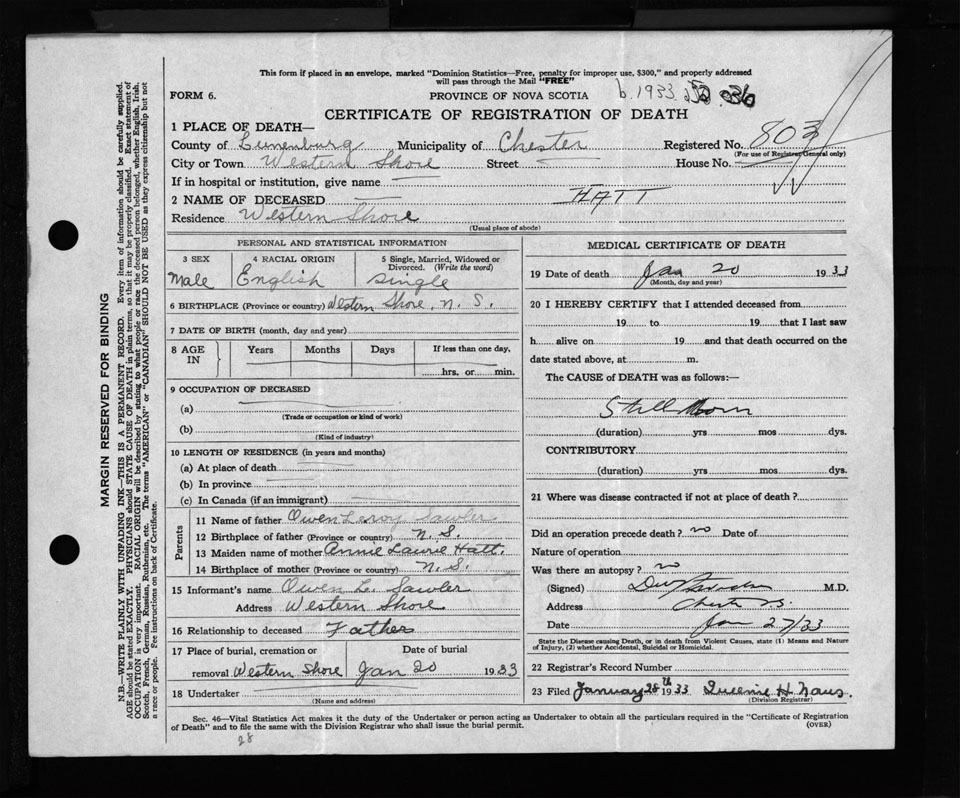 This form if placed in an envelope, marked "Dominion Statistics—Free, penalty for improper use, $300," and properly addressed
will pass through the Mail "FREE"
FORM 6.
PROVINCE OF NOVA SCOTIA b. 1933
CERTIFICATE OF REGISTRATION OF DEATH
1 PLACE OF DEATH—
County of Lunenburg Municipality of Chester Registered No. 803
(For use of Registrar General only)
City or Town Western Shore Street — House No. —
If in hospital or institution, give name —
2 NAME OF DECEASED — HATT
Residence Western Shore
(Usual place of abode)
PERSONAL AND STATISTICAL INFORMATION
3 SEX 4 RACIAL ORIGIN 5 Single, Married, Widowed or Divorced. (Write the word)
Male English Single
6 BIRTHPLACE (Province or country) Western Shore, N. S.
7 DATE OF BIRTH (month, day and year)
8 AGE IN Years Months Days If less than one day, hrs. or min.
9 OCCUPATION OF DECEASED
(a)
(Trade or occupation or kind of work)
(b)
(Kind of industry)
10 LENGTH OF RESIDENCE (in years and months)
(a) At place of death
(b) In province
(c) In Canada (if an immigrant)
Parents
11 Name of father Owen Leroy Sawler
12 Birthplace of father (Province or country) N. S.
13 Maiden name of mother Annie Laurie Hatt.
14 Birthplace of mother (Province or country) N. S.
15 Informant's name Owen L. Sawler
Address Western Shore
16 Relationship to deceased Father
17 Place of burial, cremation or Date of burial
removal Western Shore Jan 20 1933
18 Undertaker
(Name and address)
MEDICAL CERTIFICATE OF DEATH
19 Date of death Jan 20 1933
(Month, day and year)
20 I HEREBY CERTIFY that I attended deceased from
19 to 19 that I last saw
h alive on 19 and that death occurred on the
date stated above, at m.
The CAUSE of DEATH was as follows:—
Still Born
(duration) yrs mos dys.
CONTRIBUTORY
(duration) yrs mos dys.
21 Where was disease contracted if not at place of death?
Did an operation precede death? no Date of
Nature of operation
Was there an autopsy? no
(Signed) M.D.
Address Chester N.S.
Date Jan 27/33
State the Disease causing Death, or in death from Violent Causes, state (1) Means and Nature
of Injury, (2) whether Accidental, Suicidal or Homicidal.
22 Registrar's Record Number
23 Filed January 28th 1933 Queenie H. Naus.
(Division Registrar)
Sec. 46—Vital Statistics Act makes it the duty of the Undertaker or person acting as Undertaker to obtain all the particulars required in the "Certificate of Registration
of Death" and to file the same with the Division Registrar who shall issue the burial permit. (OVER)
28
MARGIN RESERVED FOR BINDING
N.B.—WRITE PLAINLY WITH UNFADING INK—THIS IS A PERMANENT RECORD. Every item of information should be carefully supplied.
AGE should be stated EXACTLY. PHYSICIANS should STATE CAUSE OF DEATH in plain terms, so that it may be properly classified. Exact statement of
OCCUPATION is very important. RACIAL ORIGIN will be described by stating to what people or race the deceased person belonged, whether English, Irish,
Scotch, French, German, Russian, Ruthenian, etc. The terms "AMERICAN" or "CANADIAN" SHOULD NOT BE USED as they express citizenship but not
a race or people. See instructions on back of Certificate.